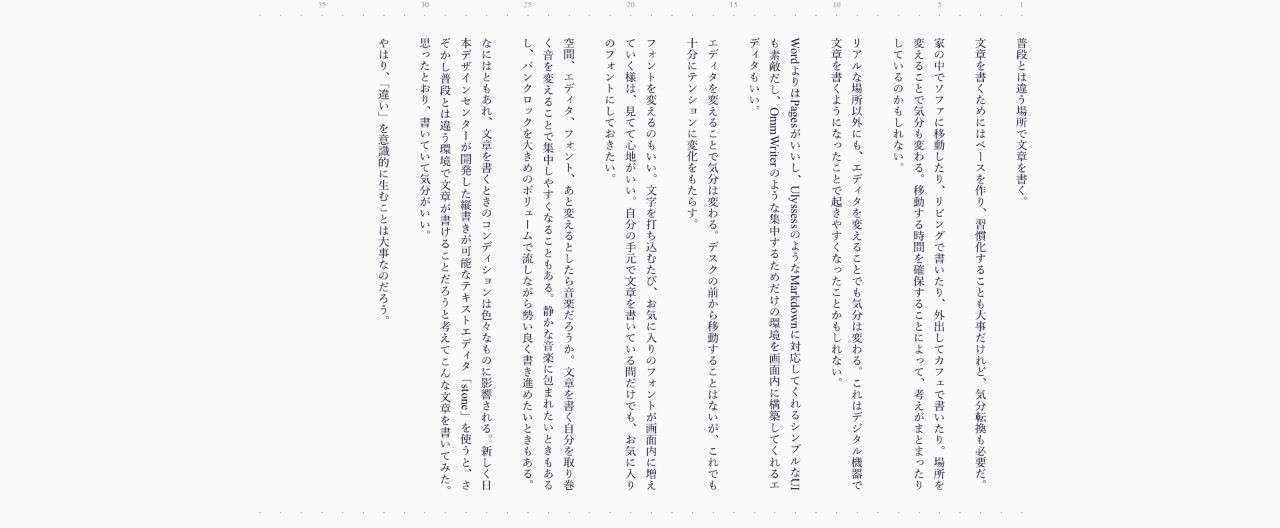 35 30 25 20 15 10 5 1
普段とは違う場所で文章を書く。
文章を書くためにはペースを作り、習慣化することも大事だけれど、気分転換も必要だ。
家の中でソファに移動したり、リビングで書いたり、外出してカフェで書いたり。場所を
変えることで気分も変わる。移動する時間を確保することによって、考えがまとまったり
しているのかもしれない。
リアルな場所以外にも、エディタを変えることでも気分は変わる。これはデジタル機器で
文章を書くようになったことで起きやすくなったことかもしれない。
WordよりはPagesがいいし、UlyssessのようなMarkdownに対応してくれるシンプルなUI
も素敵だし、OmmWriterのような集中するためだけの環境を画面内に構築してくれるエ
ディタもいい。
エディタを変えることで気分は変わる。デスクの前から移動することはないが、これでも
十分にテンションに変化をもたらす。
フォントを変えるのもいい。文字を打ち込むたび、お気に入りのフォントが画面内に増え
ていく様は、見てて心地がいい。自分の手元で文章を書いている間だけでも、お気に入り
のフォントにしておきたい。
空間、エディタ、フォント、あと変えるとしたら音楽だろうか。文章を書く自分を取り巻
く音を変えることで集中しやすくなることもある。静かな音楽に包まれたいときもある
し、パンクロックを大きめのボリュームで流しながら勢い良く書き進めたいときもある。
なにはともあれ、文章を書くときのコンディションは色々なものに影響される。新しく日
本デザインセンターが開発した縦書きが可能なテキストエディタ「stone」を使うと、さ
ぞかし普段とは違う環境で文章が書けることだろうと考えてこんな文章を書いてみた。
思ったとおり、書いていて気分がいい。
やはり、「違い」を意識的に生むことは大事なのだろう。